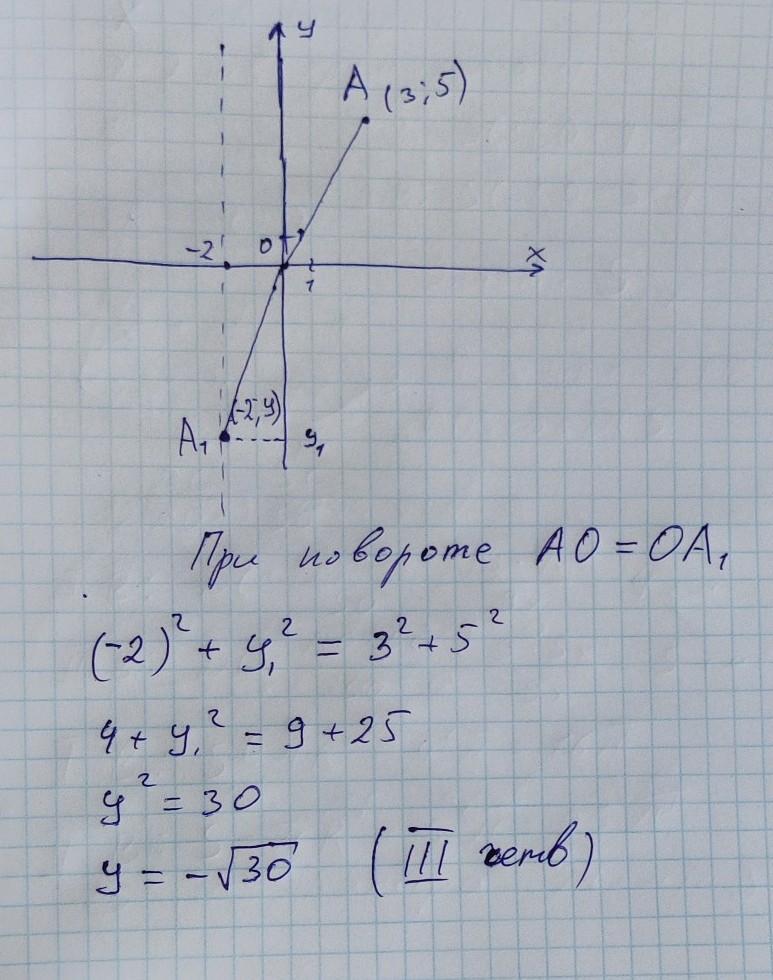 y
A (3;5)
-2
0
x
1
(-2,y)
A₁
y₁
При повороте AO = OA₁
(-2)² + y₁² = 3² + 5²
4 + y₁² = 9 + 25
y² = 30
y = -√30 (III четв)